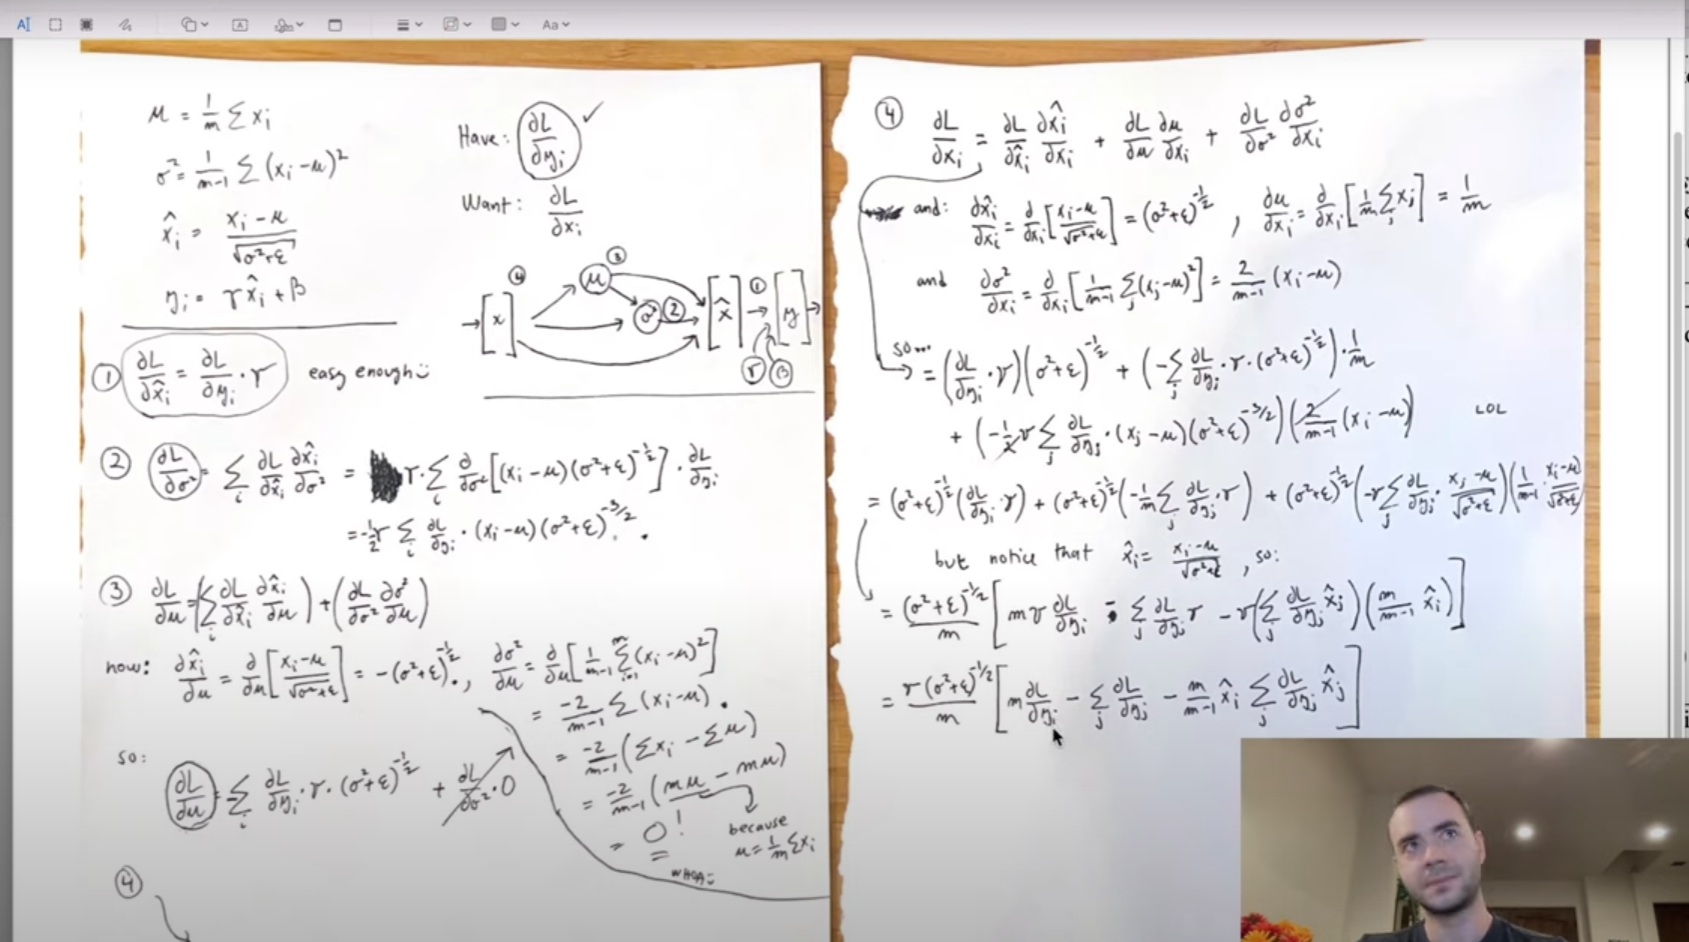 Aa
μ = 1/m Σ xᵢ
σ² = 1/(m-1) Σ (xᵢ-μ)²
x̂ᵢ = (xᵢ-μ)/√(σ²+ε)
yᵢ = γx̂ᵢ + β
Have: ∂L/∂yᵢ ✓
Want: ∂L/∂xᵢ
④ ③
[x] μ σ² ② [x̂] ① [y]
γ β
① ∂L/∂x̂ᵢ = ∂L/∂yᵢ · γ easy enough :)
② ∂L/∂σ² = Σᵢ ∂L/∂x̂ᵢ ∂x̂ᵢ/∂σ² = γ·Σᵢ ∂/∂σ² [(xᵢ-μ)(σ²+ε)^(-1/2)] · ∂L/∂yᵢ
= -1/2 γ Σᵢ ∂L/∂yᵢ · (xᵢ-μ)(σ²+ε)^(-3/2).
③ ∂L/∂μ = (Σᵢ ∂L/∂x̂ᵢ ∂x̂ᵢ/∂μ) + (∂L/∂σ² ∂σ²/∂μ)
now: ∂x̂ᵢ/∂μ = ∂/∂μ [(xᵢ-μ)/√(σ²+ε)] = -(σ²+ε)^(-1/2)., ∂σ²/∂μ = ∂/∂μ [1/(m-1) Σᵢ₌₁ᵐ (xᵢ-μ)²]
= -2/(m-1) Σ (xᵢ-μ).
= -2/(m-1) (Σxᵢ - Σμ)
= -2/(m-1) (mμ - mμ)
= 0! because
μ = 1/m Σxᵢ
WHOA :)
so: ∂L/∂μ = -Σᵢ ∂L/∂yᵢ · γ · (σ²+ε)^(-1/2) + ∂L/∂σ² · 0
④
④ ∂L/∂xᵢ = ∂L/∂x̂ᵢ ∂x̂ᵢ/∂xᵢ + ∂L/∂μ ∂μ/∂xᵢ + ∂L/∂σ² ∂σ²/∂xᵢ
and: ∂x̂ᵢ/∂xᵢ = ∂/∂xᵢ [(xᵢ-μ)/√(σ²+ε)] = (σ²+ε)^(-1/2), ∂μ/∂xᵢ = ∂/∂xᵢ [1/m Σⱼ xⱼ] = 1/m
and ∂σ²/∂xᵢ = ∂/∂xᵢ [1/(m-1) Σⱼ (xⱼ-μ)²] = 2/(m-1) (xᵢ-μ)
so... = (∂L/∂yᵢ · γ)(σ²+ε)^(-1/2) + (-Σⱼ ∂L/∂yⱼ · γ · (σ²+ε)^(-1/2)) · 1/m
+ (-1/2 γ Σⱼ ∂L/∂yⱼ · (xⱼ-μ)(σ²+ε)^(-3/2)) (2/(m-1) (xᵢ-μ)) LOL
= (σ²+ε)^(-1/2) (∂L/∂yᵢ γ) + (σ²+ε)^(-1/2) (-1/m Σⱼ ∂L/∂yⱼ · γ) + (σ²+ε)^(-1/2) (-γ Σⱼ ∂L/∂yⱼ · (xⱼ-μ)/√(σ²+ε)) (1/(m-1) · (xᵢ-μ)/√(σ²+ε))
but notice that x̂ᵢ = (xᵢ-μ)/√(σ²+ε), so:
= (σ²+ε)^(-1/2)/m [mγ ∂L/∂yᵢ - Σⱼ ∂L/∂yⱼ γ - γ(Σⱼ ∂L/∂yⱼ x̂ⱼ)(m/(m-1) x̂ᵢ)]
= γ(σ²+ε)^(-1/2)/m [m ∂L/∂yᵢ - Σⱼ ∂L/∂yⱼ - m/(m-1) x̂ᵢ Σⱼ ∂L/∂yⱼ x̂ⱼ]